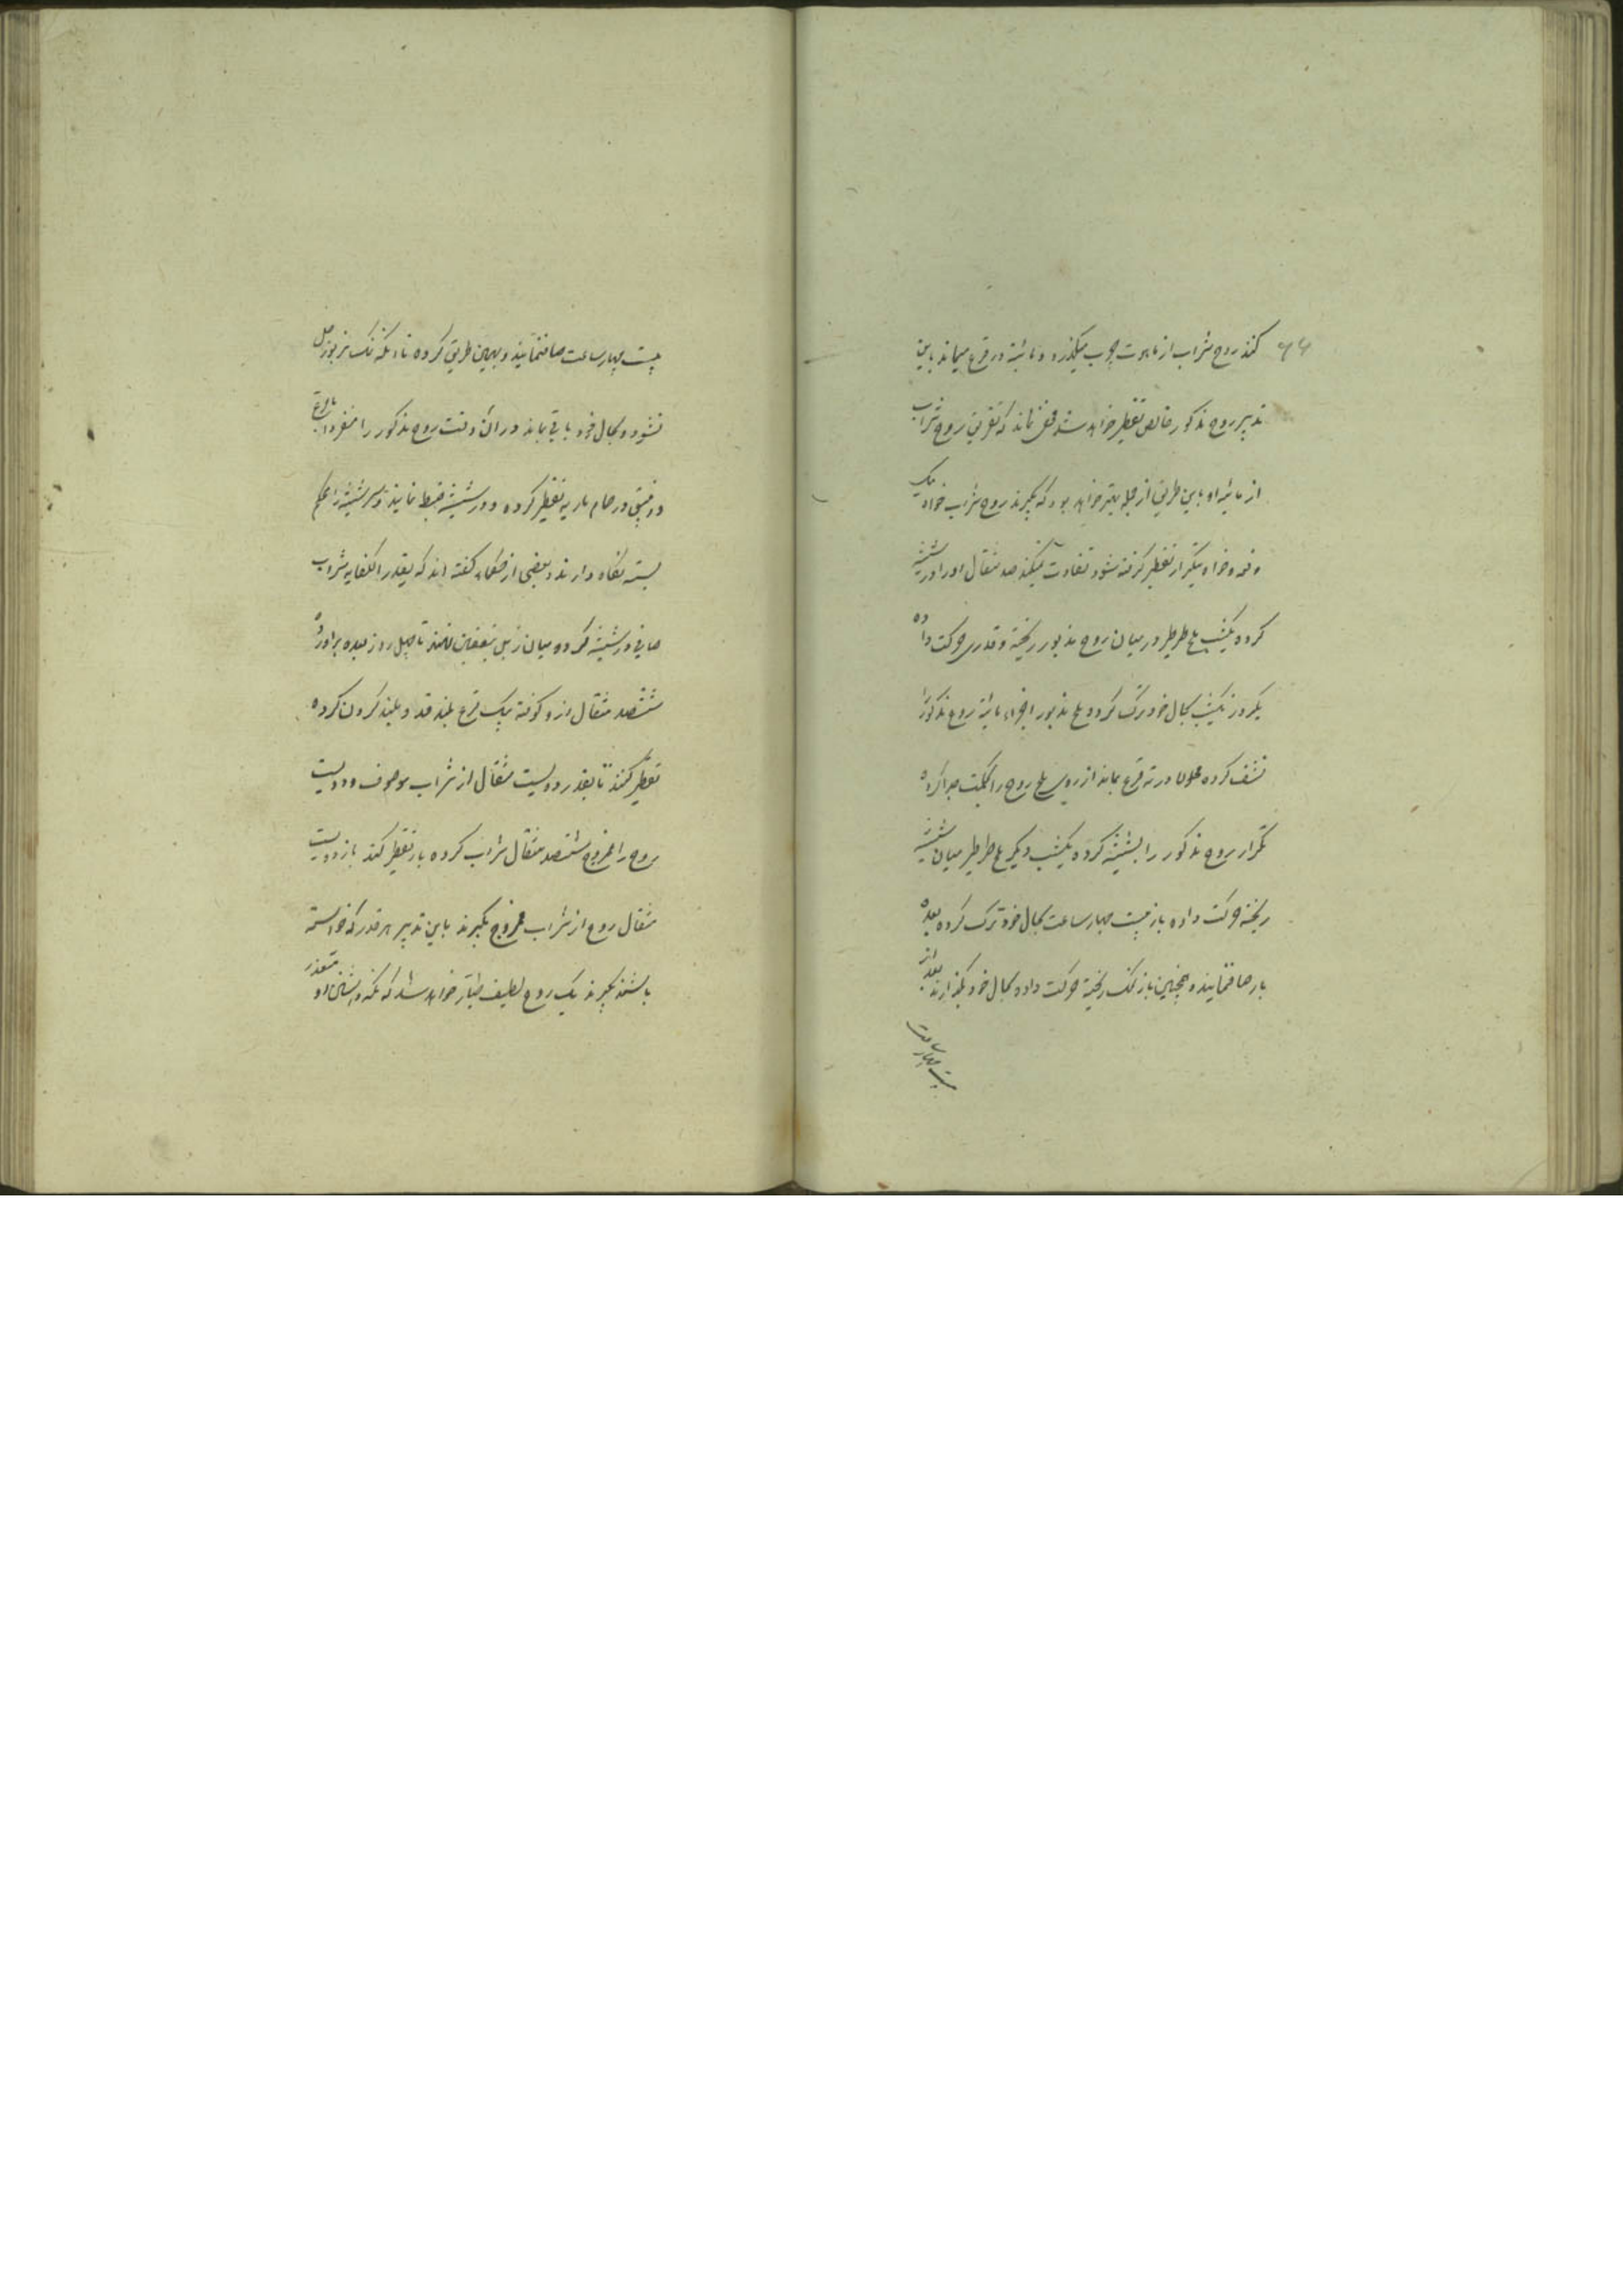 کنند روح شراب از ماهوت چوب میگذرد و مائیة در قرع میماند باین
تدبیر روح مذکور خالص تقطیر خواهد شد مخفی نماند که تفریق روح شراب
از مائیه او باین طریق از جمله بهتر خواهد بود که بگیرند روح شراب خواه یک
دفعه و خواه بتکرار تقطیر گرفته شود تفاوت نمیکند صد مثقال اورا در شیشه
کرده یکشب ملح طرطیر در میان روح مذبور ریخته و قدری حرکت داده
یکروز یکشب بحال خود ترک کرده ملح مذبور اجزاء مائیة روح مذکور را
نشف کرده محلول در ته قرع بماند از روی ملح روح را بحکمت جدا کرده
تکرار روح مذکور را بشیشه کرده یکشب دیگر ملح طرطیر میان شیشه
ریخته حرکت داده باز بیست چهار ساعت بحال خود ترک کرده بعده
باز صاف نمایند و همچنین باز نمک ریخته حرکت داده بحال خود بگذارند بعد از
بیست چهار ساعت
بیست چهار ساعت صاف نمایند و بهمین طریق کرده تا آنکه نمک مزبور حل
نشود و بحال خود باقی بماند در آن وقت روح مذکور را منفردا با قرع
و انبیق در حمام ماریه تقطیر کرده و در شیشه ضبط نمایند و سر شیشه را محکم
بسته نگاه دارند و بعضی از حکماء گفته اند که بقدر الکفایه شراب
صافی در شیشه کرده میان زبل بتعفین نهند تا چهل روز بعده برآورده
ششصد مثقال ازو گرفته بیک قرع بلند قد و بلند گردن کرده
تقطیر کنند تا بقدر دویست مثقال از شراب موصوف و دویست
روح را ممزوج ششصد مثقال شراب کرده باز تقطیر کنند باز دویست
مثقال روح از شراب ممزوج بگیرند باین تدبیر هر قدر که خواسته
باشند بگیرند یک روح لطیف طیار خواهد شد که نگه داشتن او متعذر